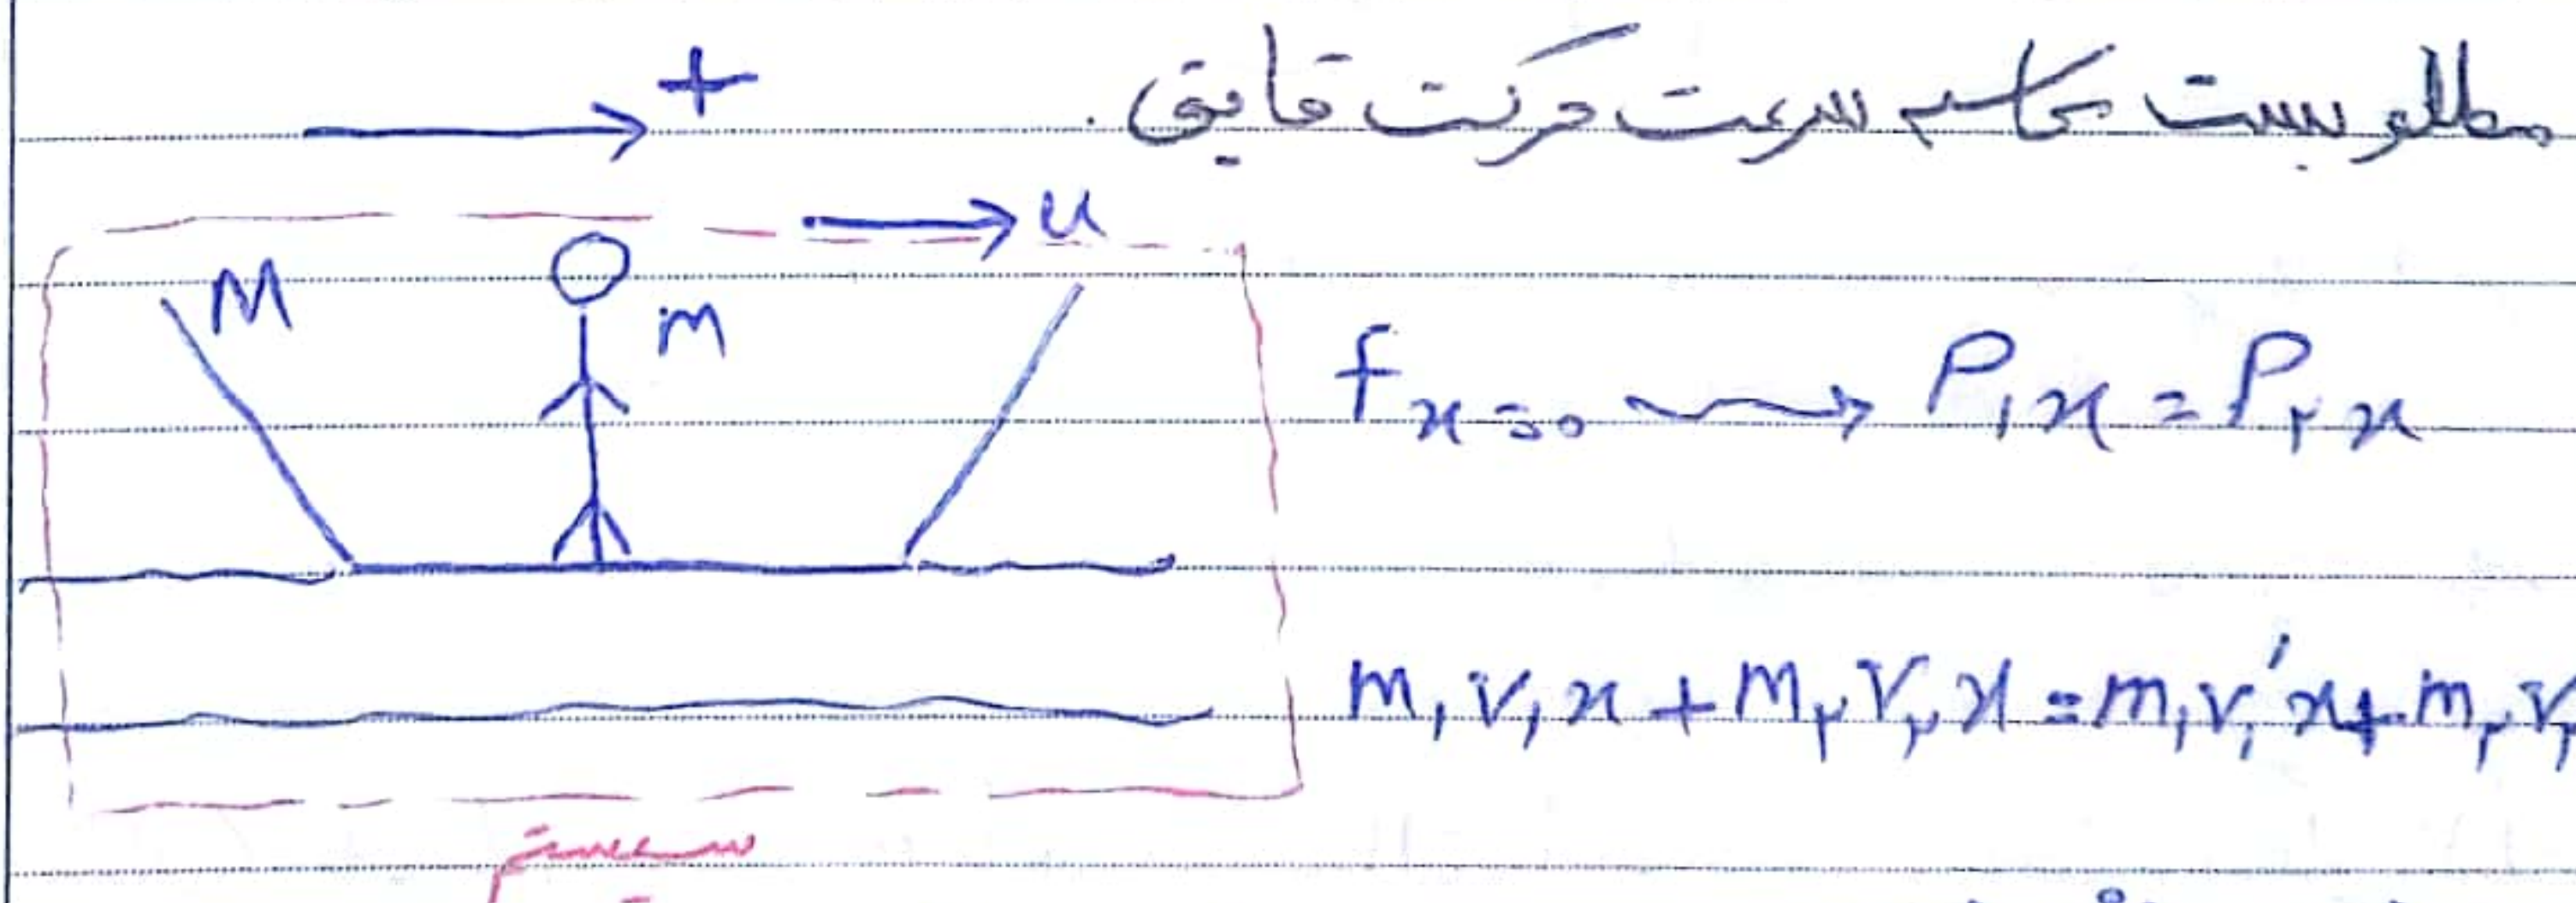 مطلوبست محاسبه سرعت حرکت قایق.
+
u
M
m
f x=0 → P۱x = P۲x
m۱v۱x + m۲v۲x = m۱v۱'x + m۲v۲
سیستم